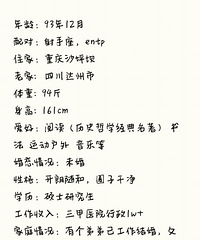 年龄：93年12月
配对：射手座，entp
住家：重庆沙坪坝
老家：四川达州市
体重：94斤
身高：161cm
爱好：阅读（历史哲学经典名著）书
法 运动户外 音乐等
婚恋情况：未婚
性格：开朗随和，圈子干净
学历：硕士研究生
工作收入：三甲医院行政1w+
家庭情况：有个弟弟已工作结婚，父